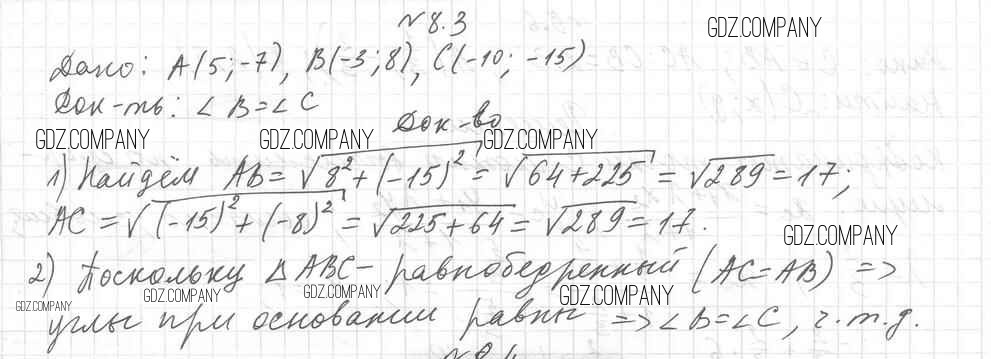 №8.3
GDZ.COMPANY
Дано: A(5;-7), B(-3;8), C(-10; -15)
Док-ть: ∠B=∠C
Док-во
GDZ.COMPANY GDZ.COMPANY GDZ.COMPANY
1) Найдём AB = √(8²+(-15)²) = √(64+225) = √289 = 17;
AC = √((-15)²+(-8)²) = √(225+64) = √289 = 17.
GDZ.COMPANY
2) Поскольку △ABC - равнобедренный (AC=AB) =>
GDZ.COMPANY GDZ.COMPANY GDZ.COMPANY GDZ.COMPANY
углы при основании равны => ∠B=∠C, ч.т.д.